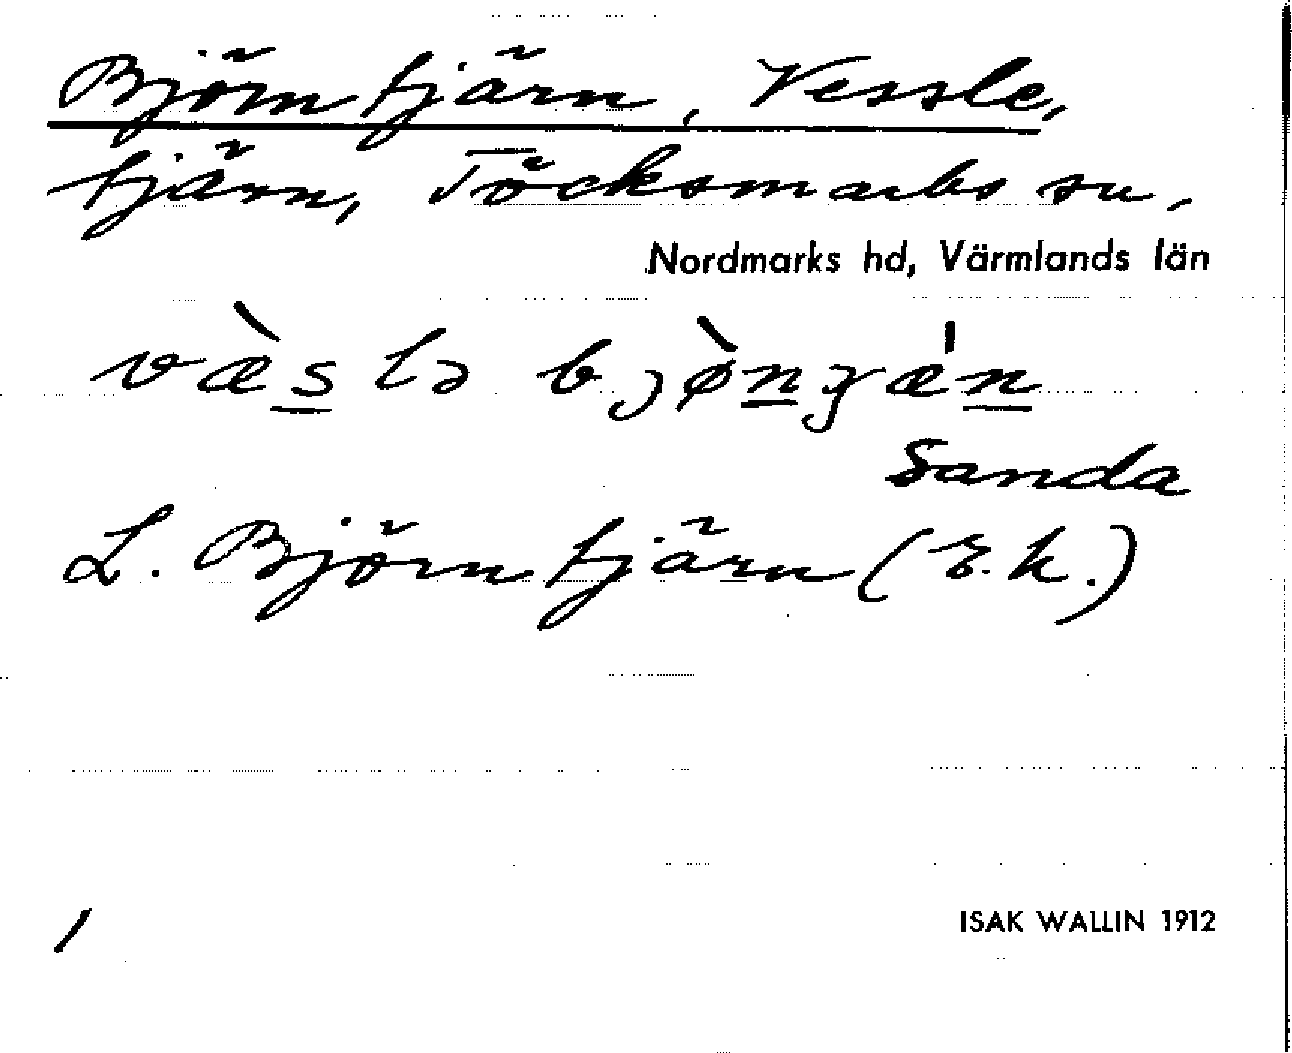 Björntjärn, Vessle,
tjärn, Töcksmarks sn,
Nordmarks hd, Värmlands län
væ̀slə bjǿnɡǽn
Sanda
L. Björntjärn (E.k.)
/
ISAK WALLIN 1912